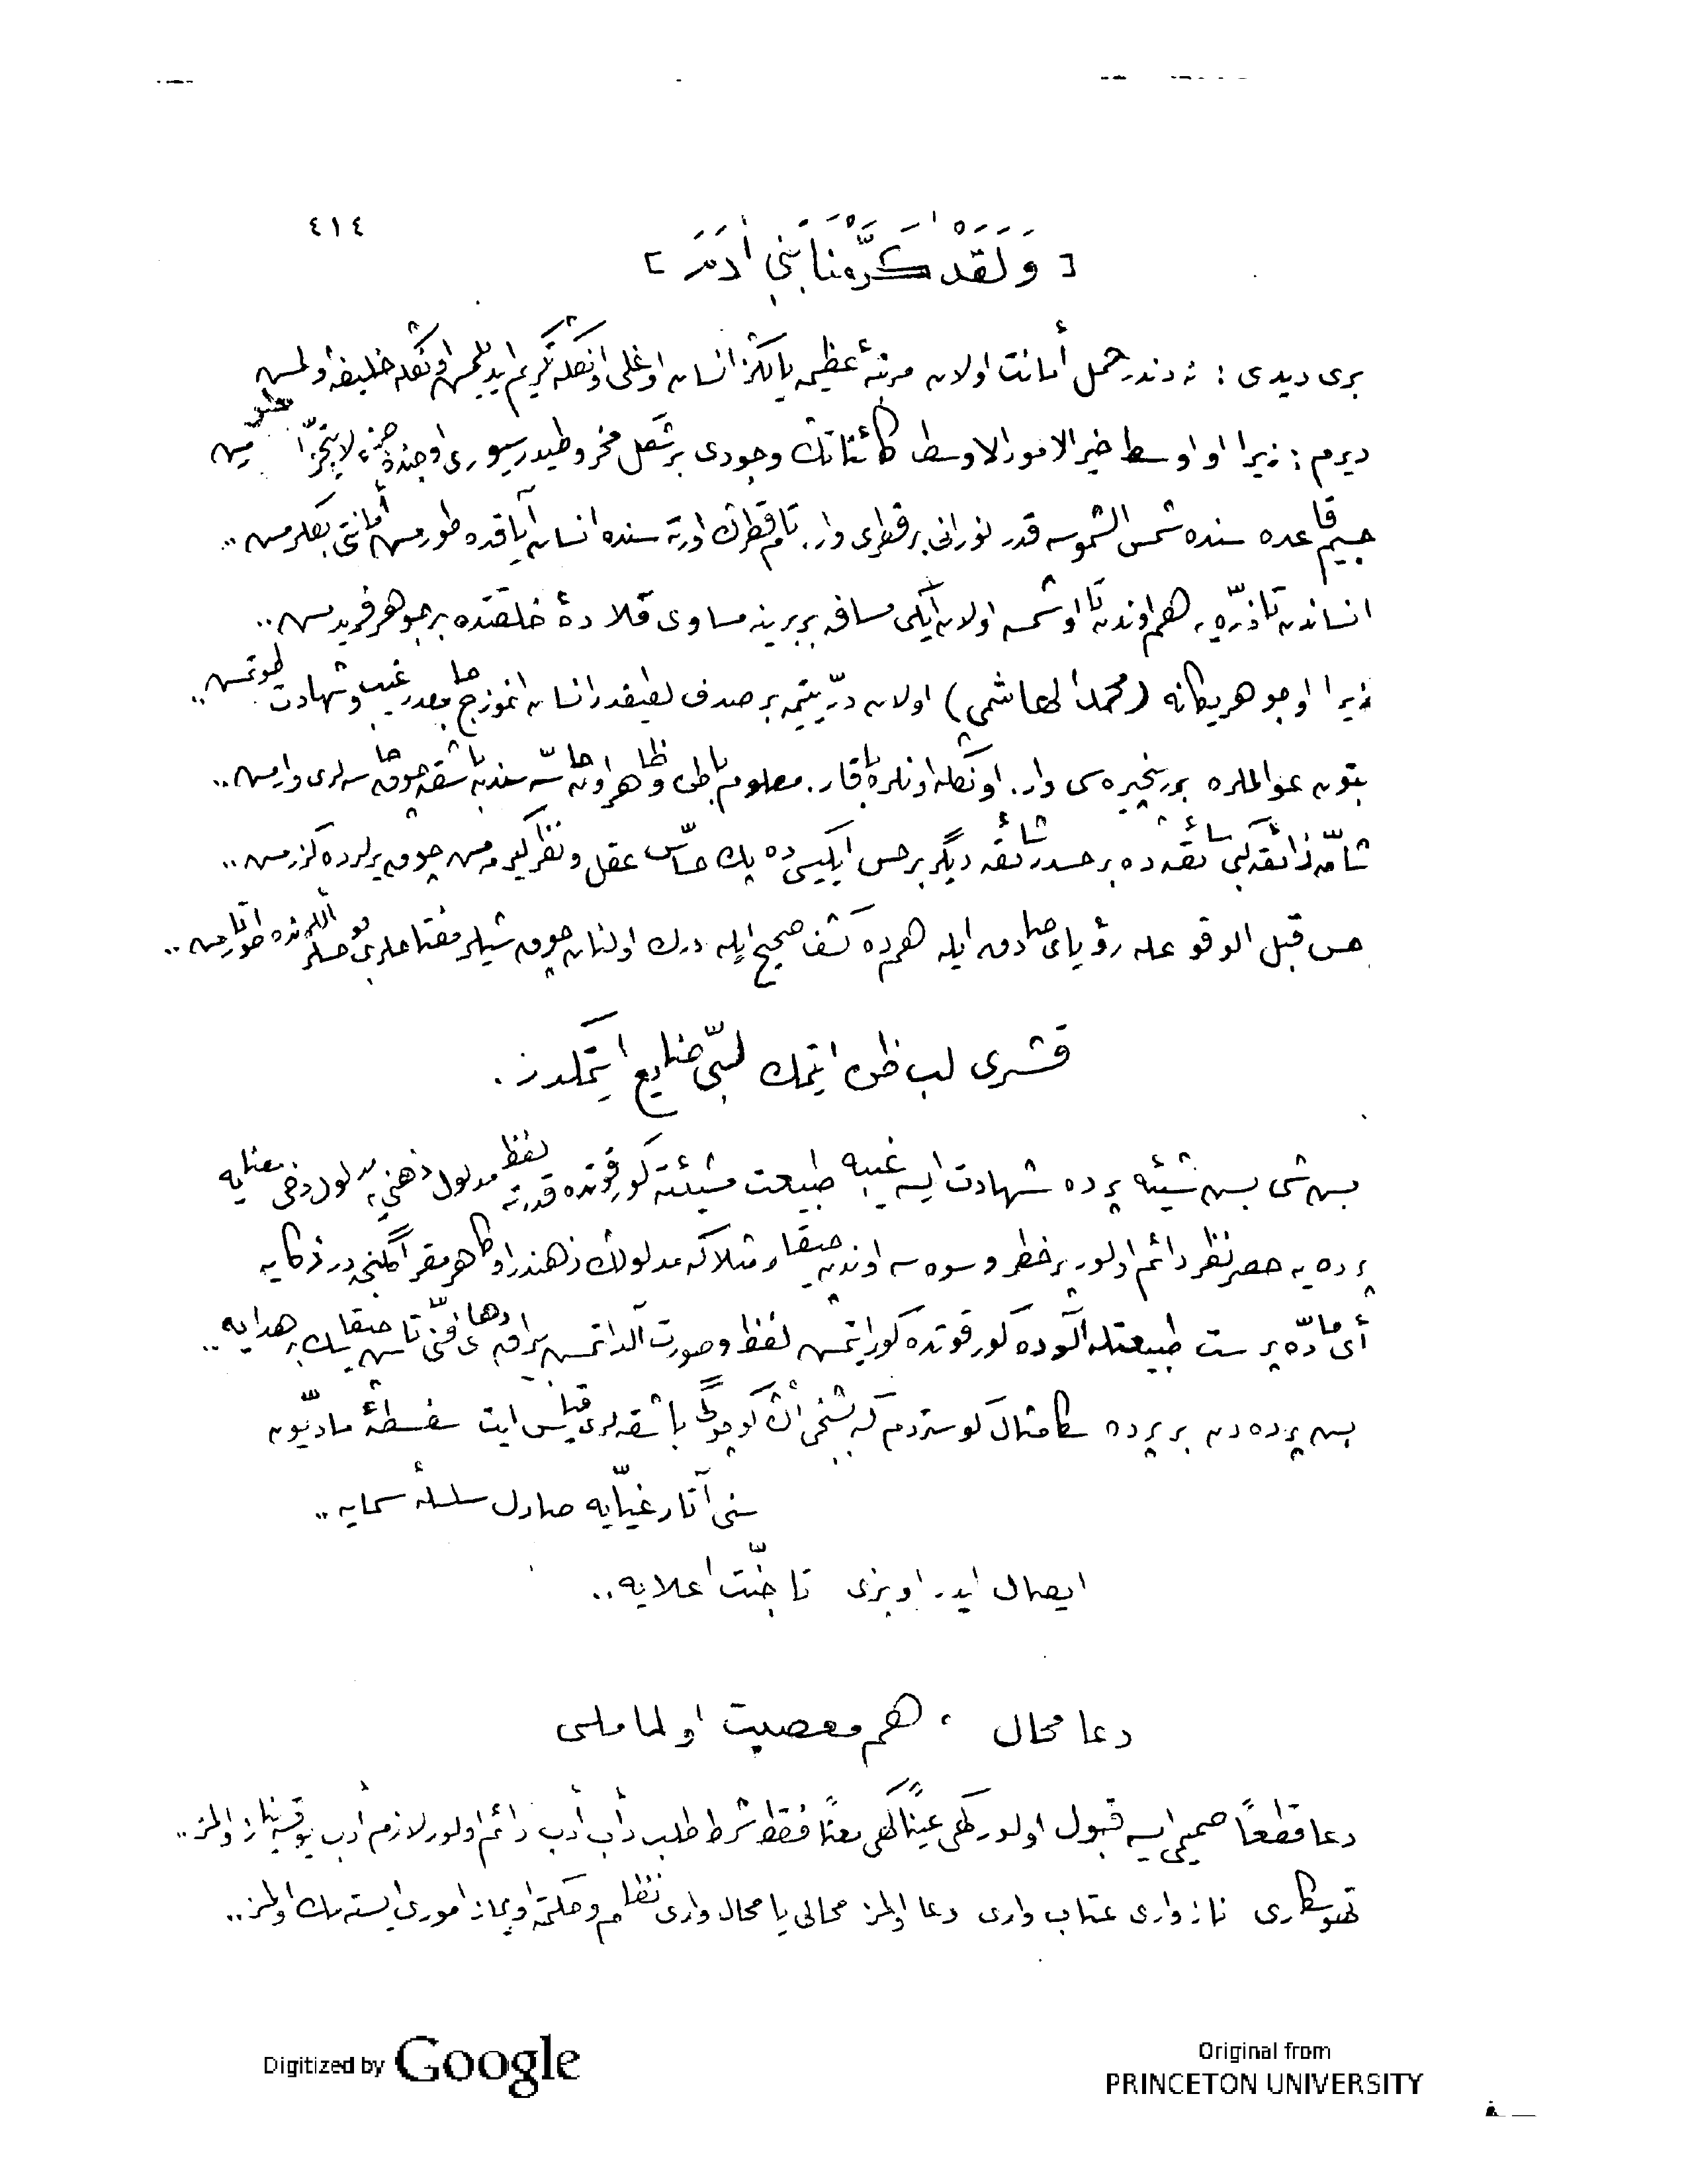 ٤١٤
[ وَلَقَدْ كَرَّمْنَا بَنِي اٰدَمَ ]
بری دیدی : نه دندر حمل أمانت اولان مرتبهٔ عظیمه یالکز انسان اوغلی اونكله تكریم ایدیلمش اونكله خلیفه اولمش
دیرم : زیرا او اوسط خیر الامور الاوسط كائناتك وجودی بر شكل مخروطیدر سیوری اوجنده جزء لایتجزّا
جسیم قاعده سنده شمس الشموسه قدر نورانی بر قطری وار. تام قطرك اورته سنده انسان آیاقده طورمش أمانتی بكلرمش ..
انساندن تا ذرّه یه، هم اوندن تا او شمسه اولان ایكی مسافه بربرینه مساوی قلادهٔ خلقتده بر جوهر فریدمش ..
زیرا او جوهر یكانه (محمد الهاشمی) اولان درّ یتیمه بر صدف لطیفدر انسان انموزج جامعدر غیب و شهادت طوتمش ..
بتون عوالمله بر پنجره سی وار. اونكله اونلره باقار. معلوم باطن و ظاهر اون حاسّه سندن باشقه چوق حاسه لری وارمش ..
شامّه ذائقه كبی سائقه ده بر حسدر شائقه دیگر بر حس ایكیسی ده پك حسّاس عقل و نظر گیرمه مش چوق یرلرده كزرمش ..
حس قبل الوقوعله رؤیای صادقه ایله هم ده كشف صحیح ایله درك اولنان چوق شیلر مفتاحلری
قشری لب ظن ایتمك لبّی ضایع ایتمكدر .
بس شی بس شیئه پرده شهادت ایسه غیبه طبیعت مشیئته كور قوتده قدرته لفظ مدلول ذهنی یه مدلول دخی معنایه
پرده یه حصر نظر دائم اولور پر خطر وسوسه اوندن چیقار مثلا كه مدلولك ذهندر او كا هر مقر اكلنجه در ذكایه
أی مادّه پرست طبیعتله آلوده كور قوتده كور ایتمش لفظ و صورت آلداتمش براق دهای فنّی تا چیقاسین پك بر هدایه ..
بس پرده دن بر پرده سكا مثال كوستردم كه بشنجی اڭ كوچوكی باشقه لری قیاس ایت سفسطهٔ مادیّون
سنی آثار غیّایه صارل سلسلهٔ سمایه ..
ایصال ایدر او بزی تا جنّت اعلایه ..
دعا محال ، هم معصیت اولماملی
دعا قطعًا صمیمی ایسه قبول اولور كهی عینًا كهی معنًا فقط شرط طلب دأب أدب دائم اولور لازم أدب یوقسه نیاز اولمز ..
تهوسكاری نازواری عتاب واری دعا اولمز محالی یا محال واری نظام و حكمته اویماز اموری ایسته مك اولمز ..
Digitized by Google
Original from
PRINCETON UNIVERSITY